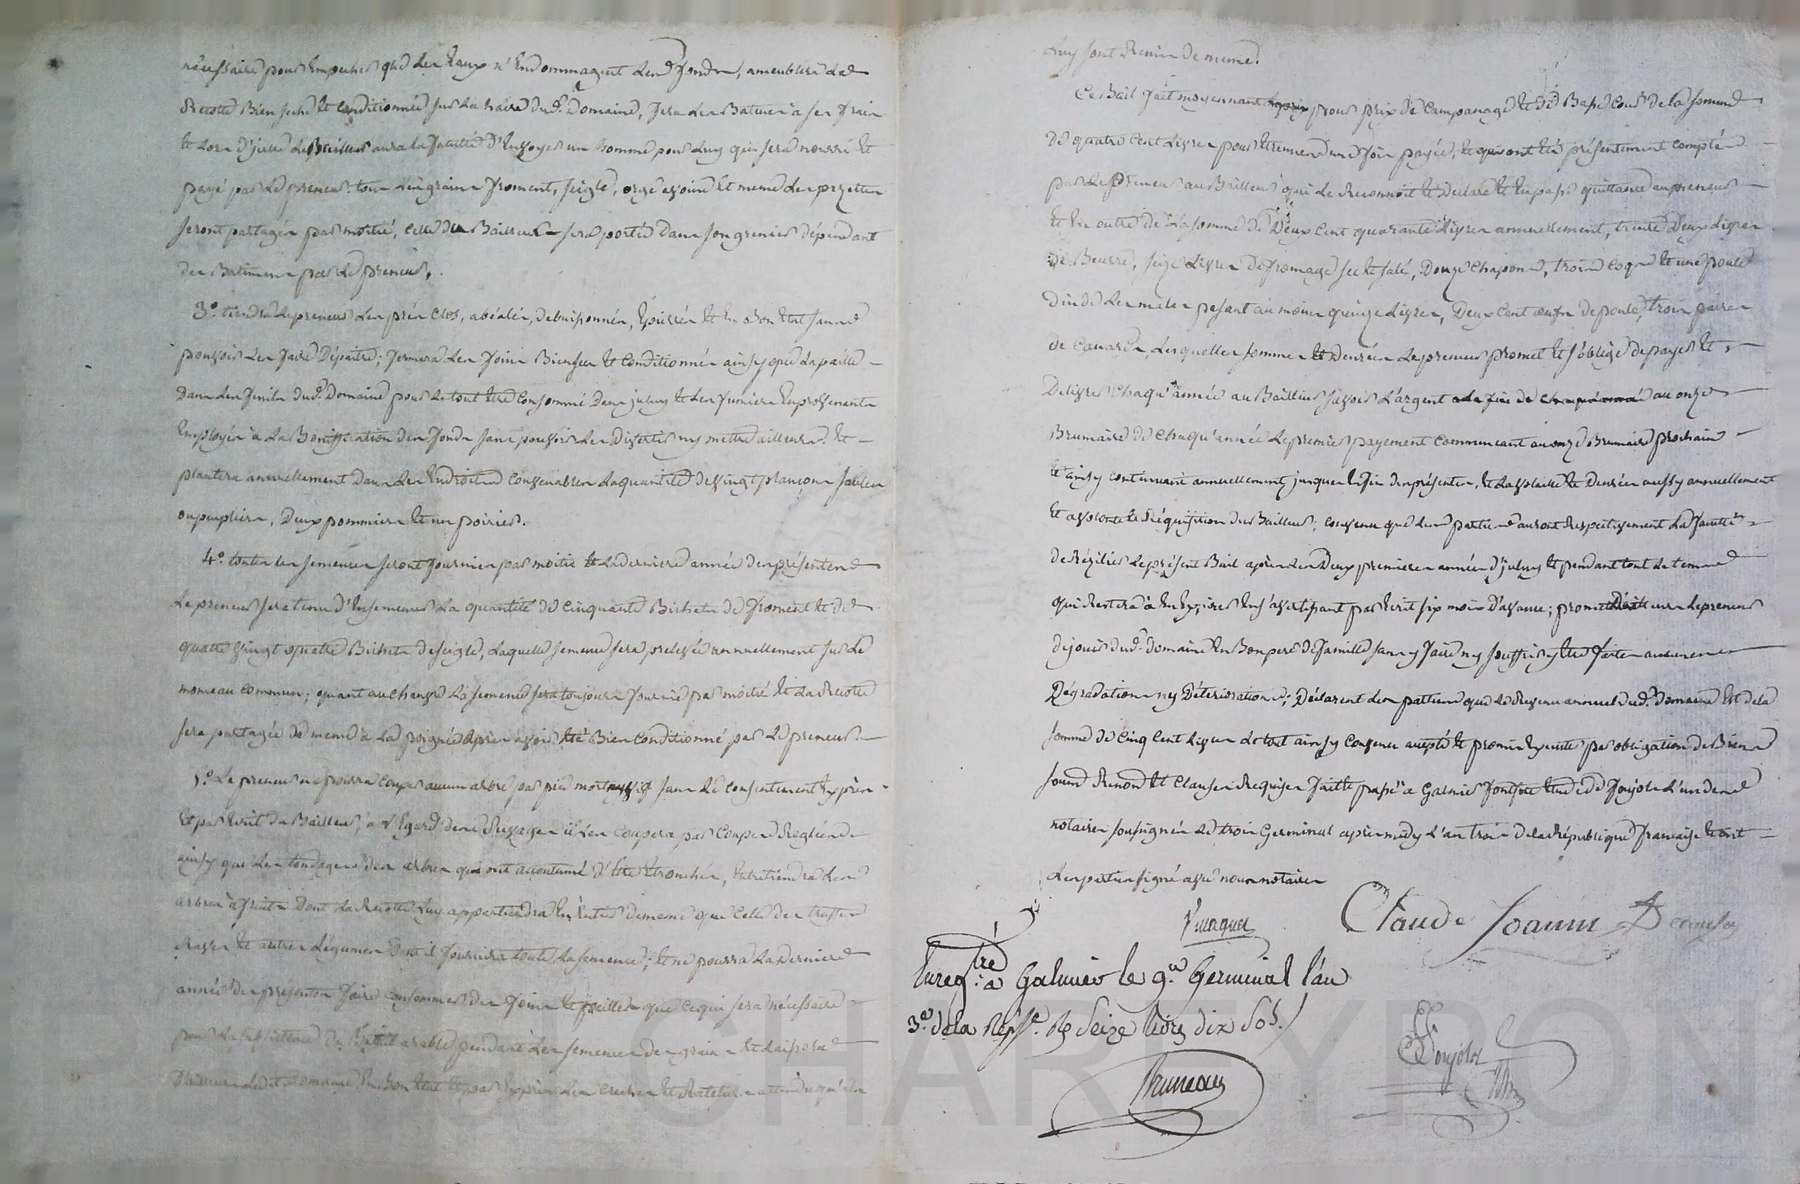 nécessaire pour Empecher que les Eaux n'Endommagent lesd. fonds, ameublera la
Recolte Bien seche et conditionnée sur la haire dud. Domaine, fera les Batures à ses frais
et lors d'icelle le Bailleur aura la faculté d'Envoyer un homme pour luy qui sera nourri et
payé par le preneur; tous les grains froment, seigle, orge avoine et meme les
seront partagés par moitié, celle du Bailleur sera portée dans son grenier dépendant
des Batimens par le preneur,
3°. tiendra le preneur les prés clos, abéalés, debuisonnés, Epierrés et En bon Etat sans
pouvoir les faire Dépaitre; fermera les foins Bien sec et Conditionnés ainsy que la paille
dans les fenils dud. Domaine pour le tout Etre Consommé dans iceluy et les fumiers En provenants
Employés à la Bonification des fonds sans pouvoir les Divertir ny mettre ailleurs. Et
plantera annuellement dans les Endroits Convenables la quantité de vingt plançons saules
ou peupliers, Deux pommiers et un poirier.
4°. toutes les semences seront fournies par moitié et la derniere année des présentes
le preneur sera tenu d'Ensemencer la quantité de Cinquante Bichets de froment et de
quatre vingt quatre Bichets de seigle, laquelle semence sera prelevée annuellement sur le
monceau commun; quant au chanvre la semence sera toujours fournie par moitié et la Recolte
sera partagée de meme à la poignée après avoir été Bien conditionné par le preneur.
5°. Le preneur ne pourra couper aucun arbre par pied mort ny vif sans le consentement Exprès
et par Ecrit du Bailleur, à l'Egard des il en coupera par Coupes Reglées
ainsy que les tondages des arbres qui ont accoutumé d'Etre Etronchés, Entretiendra les
arbres à fruits dont la Recolte luy appartiendra En Entier de meme que celle des truffes
Raves et autres légumes dont il fournira toute la semence; et ne pourra la derniere
année des présentes faire Consommer des foins et pailles que ce qui sera nécessaire
pour la subsistance du Bétail arable pendant les semences des grains et laissera
D'ailleurs ledit Domaine En bon Etat et par Exprès les creches et Rateliers attendu qu'ils
luy sont Remis de meme.
Ce Bail fait moyennant pour prix de Campanage et de Basse Cour de la somme
de quatre Cent livres pour Etrennes d'une fois payée, et qui ont Eté présentement comptés
par le Preneur au Bailleur qui le Reconnoit le Declare et En passe quittance au preneur
Et En outre de la somme de Deux Cent quarante livres annuellement, trente Deux livres
de Beurre, seize livres de fromage sec et salé, Douze chapons, trois Coqs et une poule
d'inde les males pesant au moins quinze livres, Deux Cent œufs de poule, trois paires
de Canards lesquelles sommes et denrées le preneur promet et s'oblige de payer et
Delivrer chaqu'année au Bailleur savoir l'argent à la fin de chaqu'année au onze
Brumaire de chaqu'année le premier payement commencant au onze Brumaire prochain
et ainsy continuera annuellement jusques à fin des présentes, et la volaille et Denrées aussy annuellement
Et à volonté et Réquisition du Bailleur; Convenu que les parties auront respectivement la faculté
de Résilier le présent Bail après les Deux premieres années d'iceluy et pendant tout le temps
qui Restera à En Expirer En s'avertissant par Ecrit six mois d'avance; promet le preneur
de jouir dud. Domaine En Bon pere de famille sans y faire ny souffrir y Etre fait aucune
Dégradations ny Déteriorations; Déclarent les parties que le Revenu annuel dud. Domaine Est de la
somme de Cinq Cent livres le tout ainsy Convenu accepté et promis Executer par obligation de Biens
soumis Renon. et Clauses Requises fait et passé à Galmier Etude de Foujols l'un des
notaires soussignés le trois Germinal après midy l'an trois de la République française et ont
les parties signé avec nous notaires
Claude Joanin
Enregtré à Galmier le 9.e Germinal l'an
3.e de la Rép.e Re Seize livres dix Sols.
Bruneau
Foujols
CHAREYRON